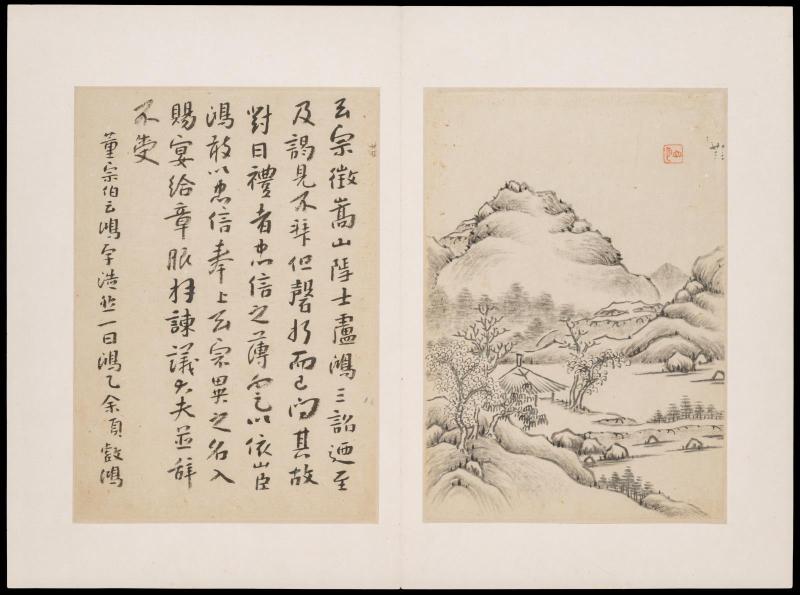 玄宗徵嵩山隱士盧鴻三詔迺至
及謁見不拜但磬折而已問其故
對曰禮者忠信之薄不足以依山臣
鴻敢以忠信奉上玄宗異之召入
賜宴給章服拜諫議大夫並辭
不受
董宗伯云鴻字浩然一曰鴻乙余戲鴻